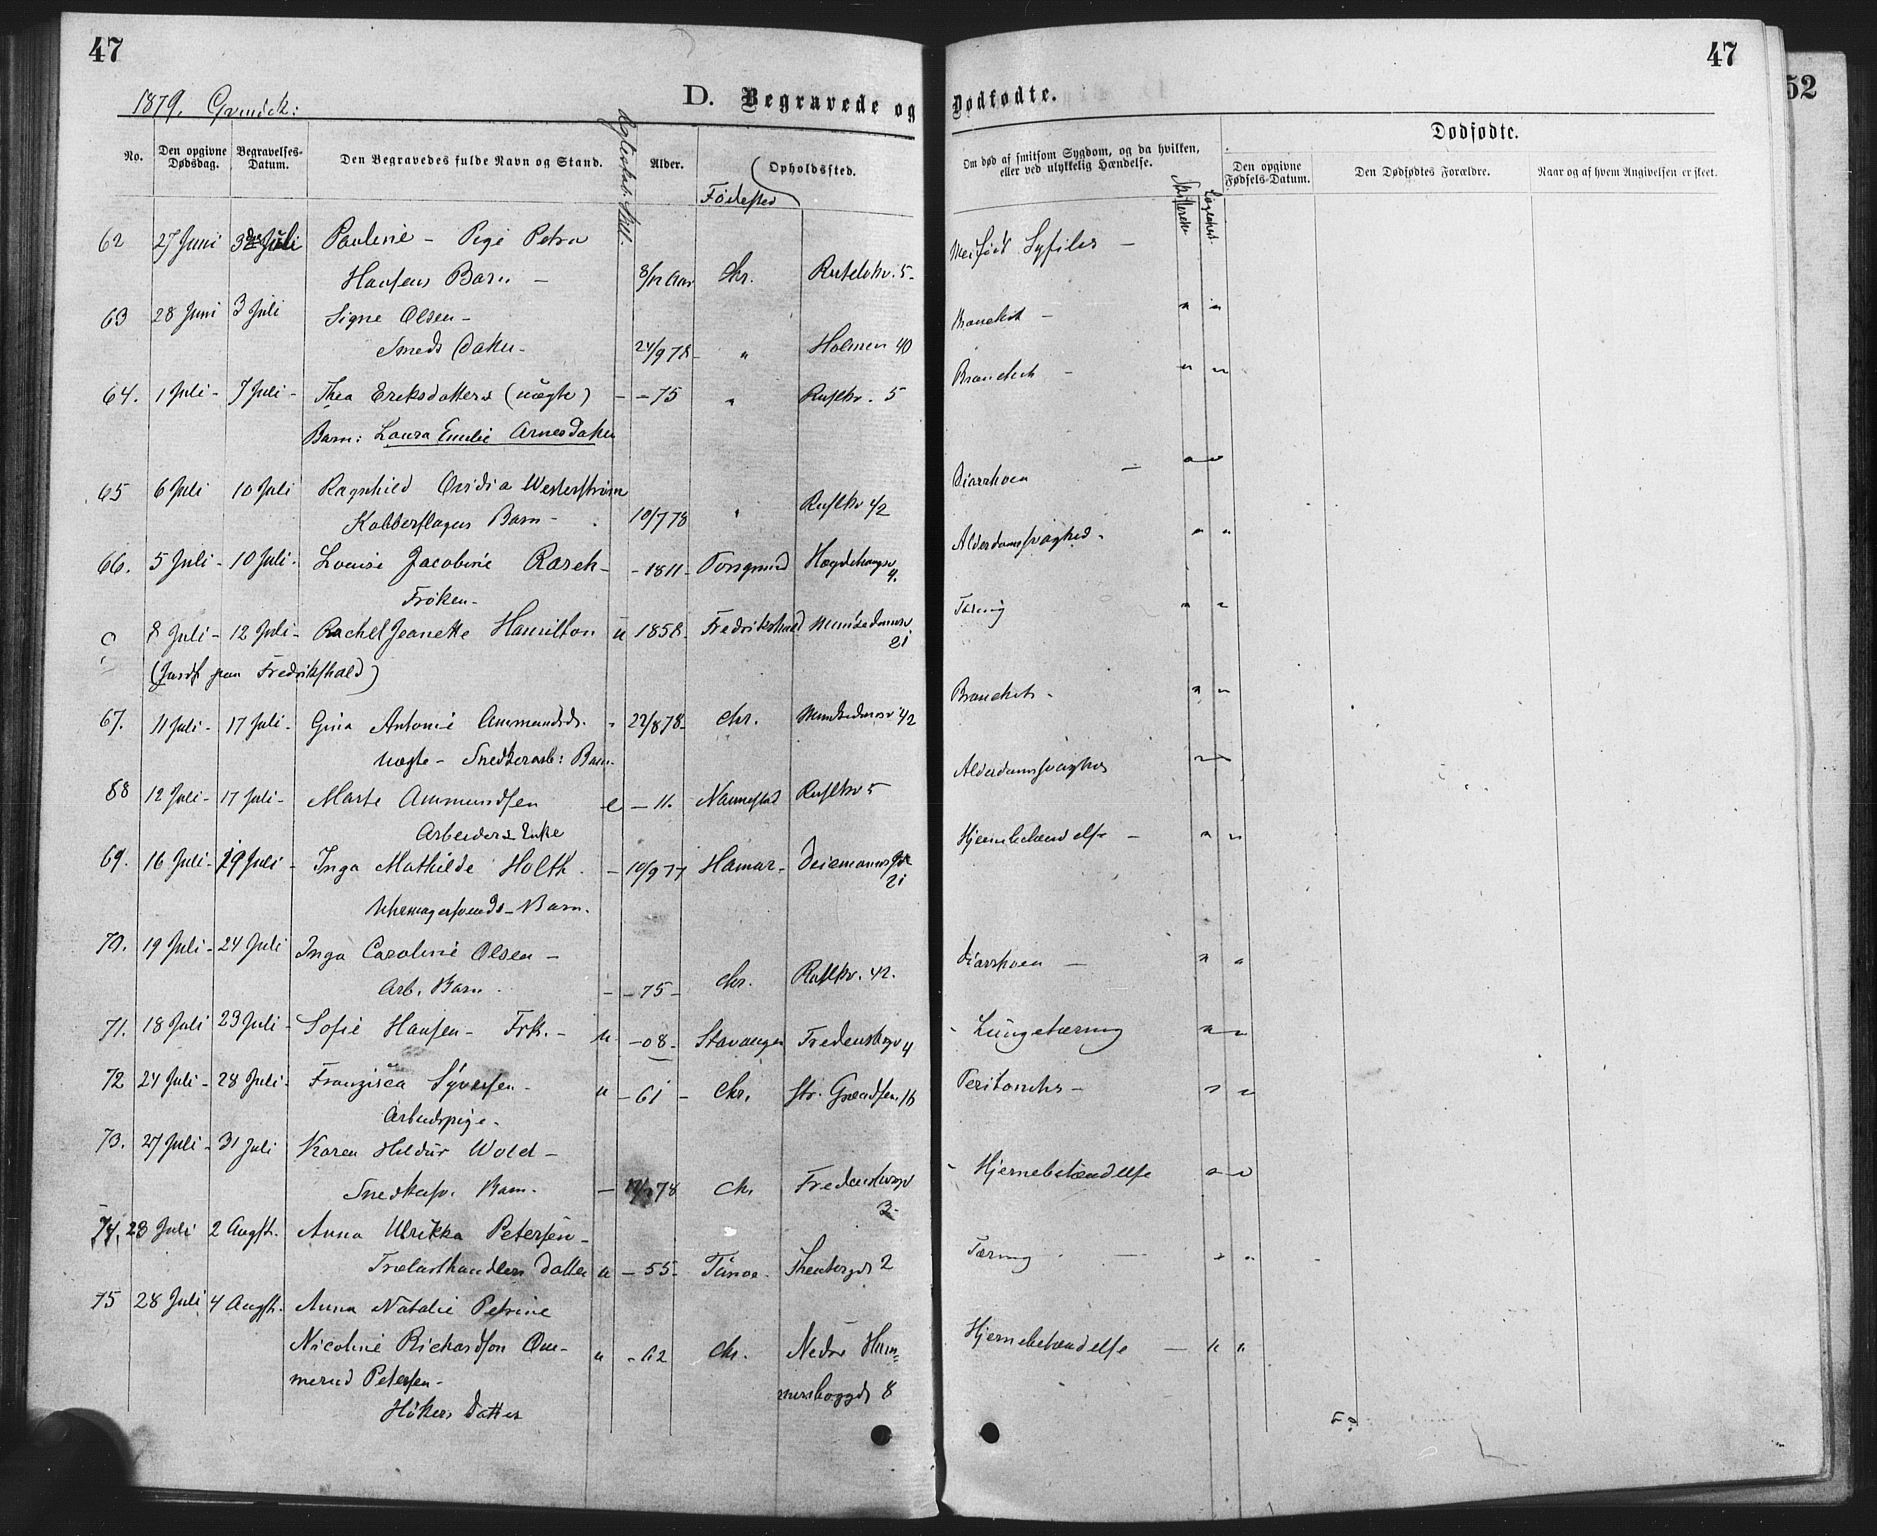 47
47
52
1879. Qvindek:
D. Begravede og Dødfødte.
No.
Den opgivne Dødsdag.
Begravelses-Datum.
Den Begravedes fulde Navn og Stand.
Alder.
Fødested
Opholdssted.
Om død af smitsom Sygdom, og da hvilken, eller ved ulykkelig Hændelse.
Dødfødte.
Den opgivne Fødsels-Datum.
Den Dødfødtes Forældre.
Naar og af hvem Angivelsen er skeet.
62 27 Juni 3 Juli Pauline - Pige Petra Syfilis -
Hansens Barn - 8/12 Aar Chr. 5-
63 28 Juni 3 Juli Signe Olsen -
Smeds Datter - 24/9 78 - " Holmen 40
64. 1 Juli - 7 Juli - Thea Eriksdatters (uægte) - - 75 " 5
Barn: Laura Emilie Arnesdatter
65 6 Juli 10 Juli Ragnhild Ovidia Westerstrøm Diarrhoea -
Kobberslagers Barn - 10/7 78 " 42
66. 5 Juli - 10 Juli - Louise Jacobine Rasch - - 1811 - Porsgrund 4. Alderdomssvaghed -
Frøken -
8 Juli - 12 Juli - Rachel Jeanette Hamilton u 1858 - Fredrikshald Munkedamsv 21 Tæring
(Jordf paa Fredrikshald)
67. 11 Juli - 17 Juli - Gina Antonie Ammundsd. - 22/8 78 - Chr. Munkedamsv 42
Uægte - Snedkerarb: Barn -
68 12 Juli - 17 Juli - Marte Ammundsen e - 11. Nannestad 5 Alderdomssvaghed
Arbeiders Enke
69. 16 Juli - 19 Juli - Inga Mathilde Holth - - 10/9 77 Hamar - Deichmansgd 21 Hjernebetændelse -
Uhrmagersvends - Barn.
70. 19 Juli - 24 Juli Inga Caroline Olsen - Diarrhoea -
Arb. Barn - - 75 - Chr. 42.
71. 18 Juli 23 Juli - Sofie Hansen - Frk. - u. - 08 - Stavanger Fredensbgv 4 Lungetæring
72 24 Juli - 28 Juli - Franzisca Syversen - u - 61 - Chr. Str. Grændsen 16 Peritonitis -
Arbeidspige -
73. 27 Juli - 31 Juli Karen Hildur Wold - Hjernebetændelse
Snedkersv. Barn - - 78 Chr Fredensborgv 3-
74. 23 Juli 2 Augst. Anna Ulrikka Petersen - Tæring
Trælasthandlers Datter u - 55 - 2
75 28 Juli 4 Augst. Anna Natalie Petrine
Nicoline Richardson Om- u - 62 Chr. Nedre Ham- Hjernebetændelse - " "
merud Petersen - mersborggd 8
Høkers Datter